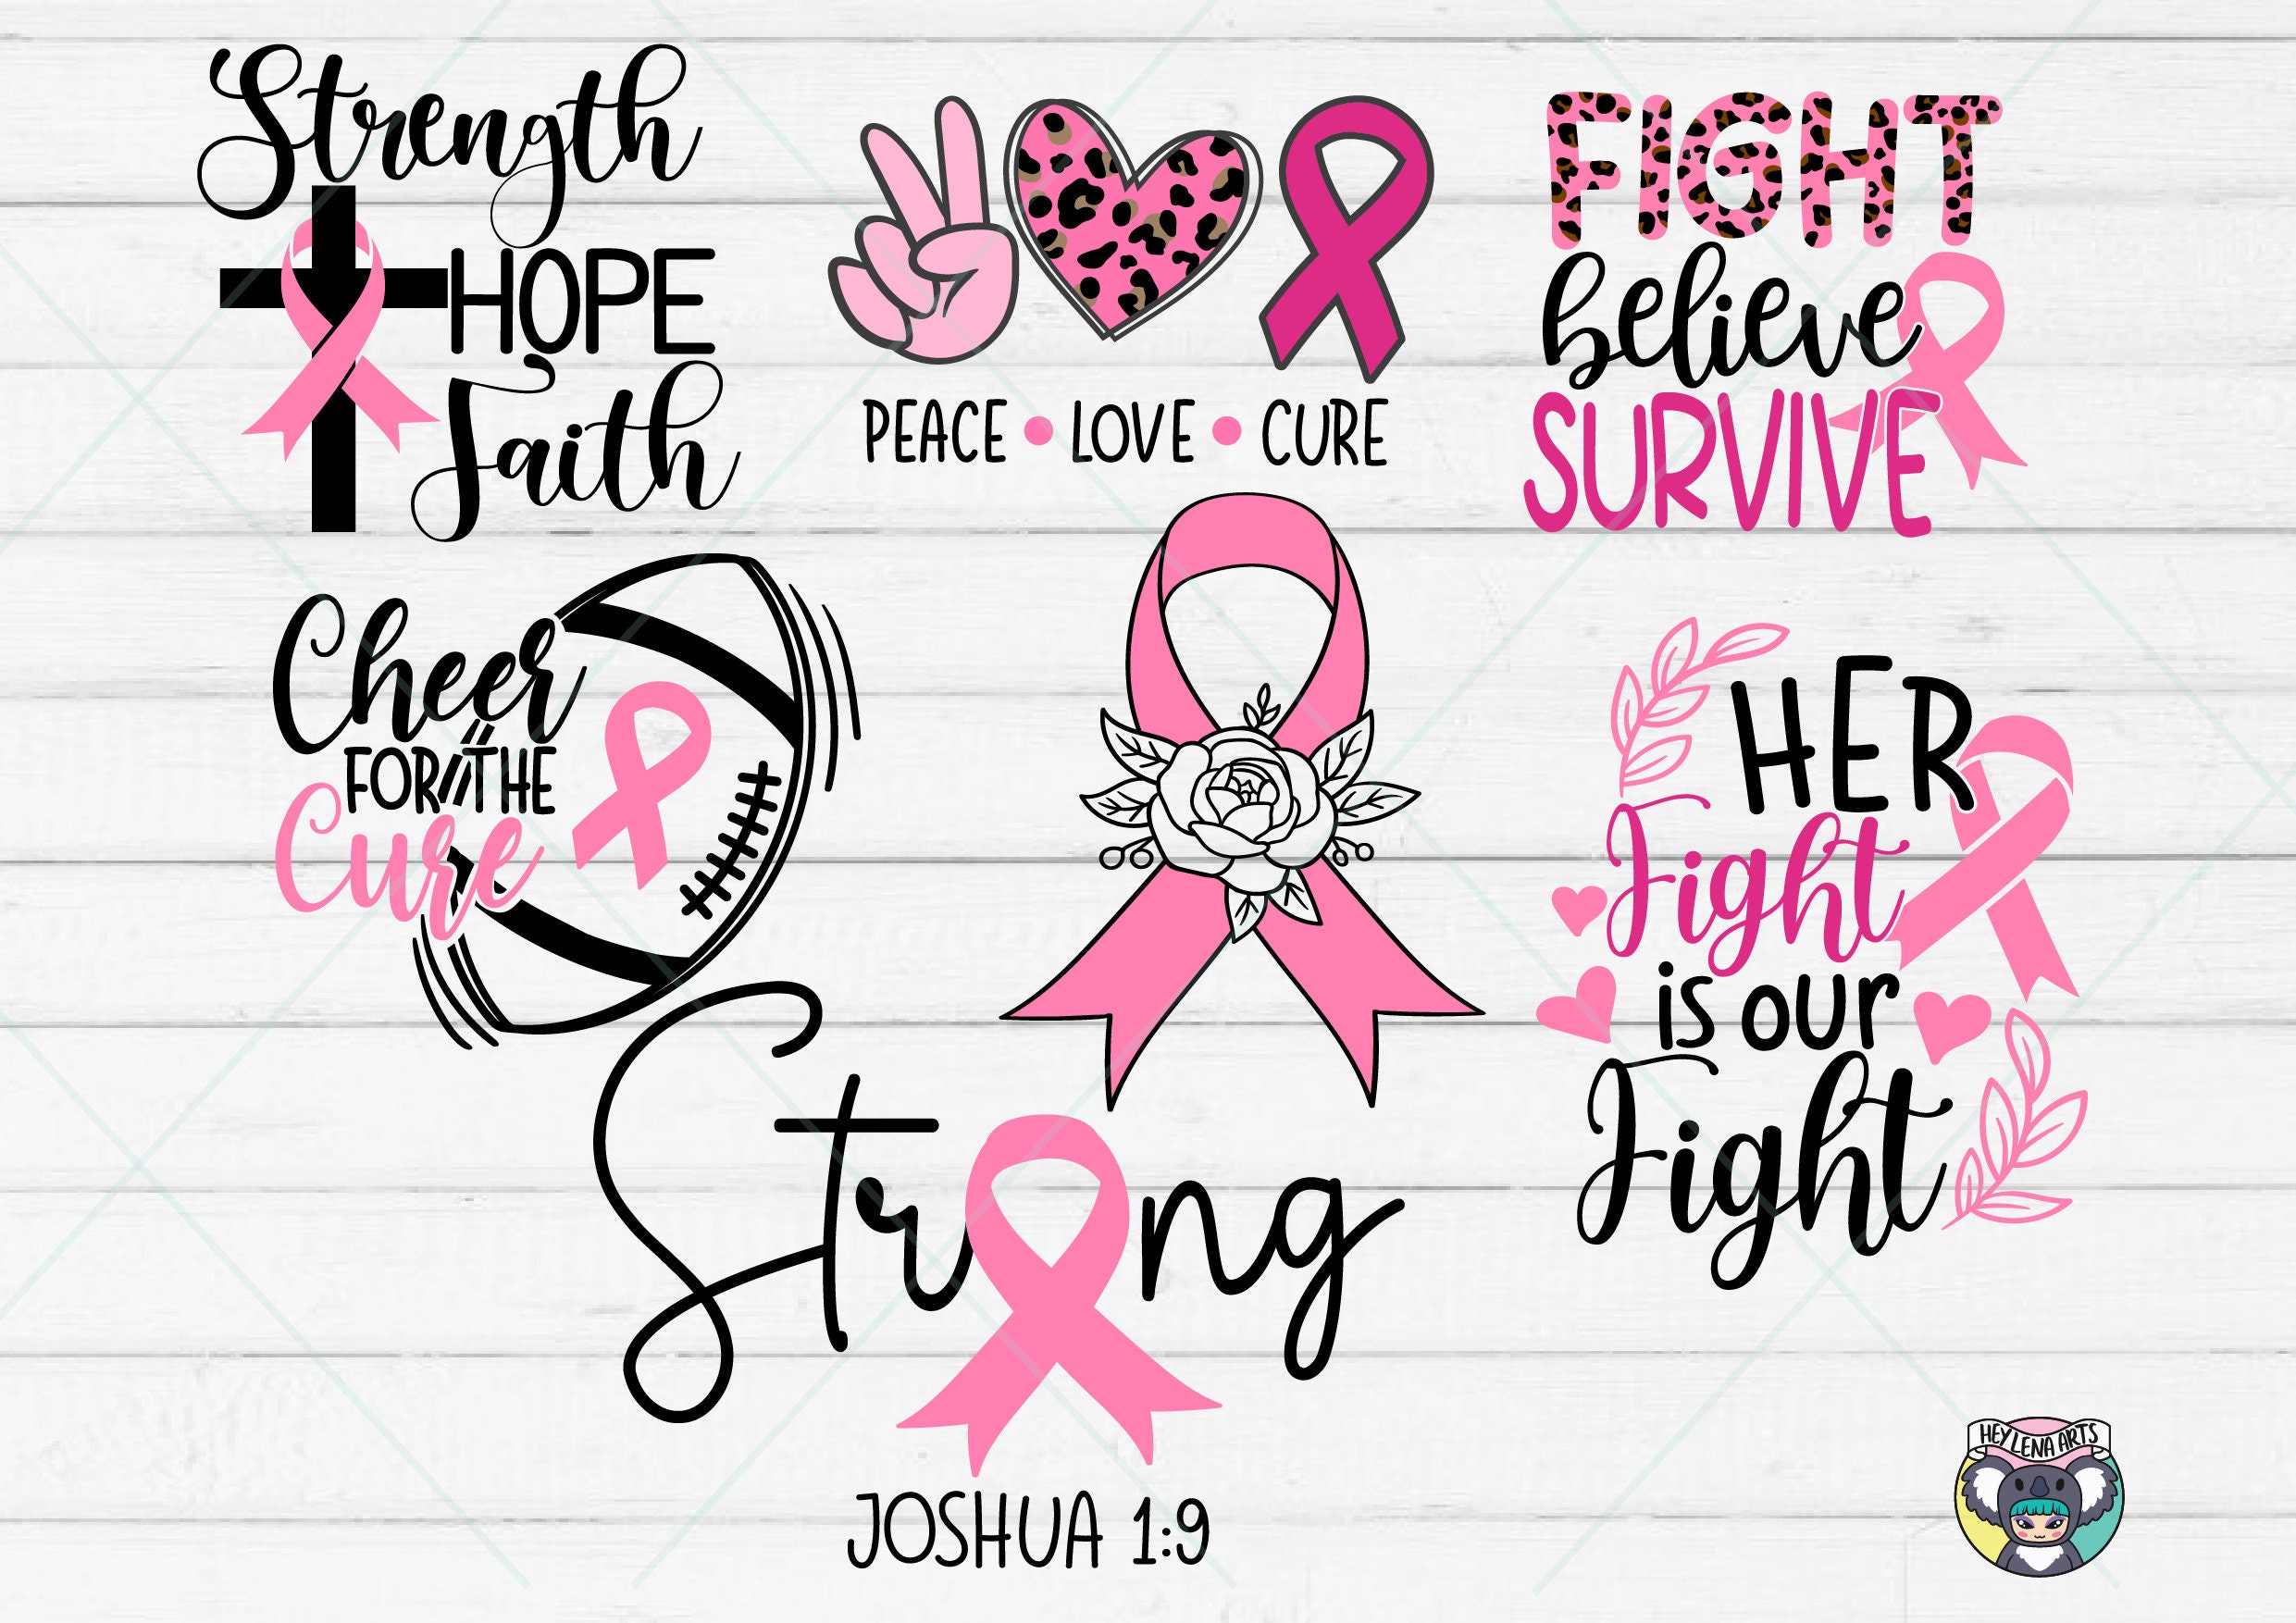 Strength
HOPE
Faith
PEACE • LOVE • CURE
FIGHT
believe
SURVIVE
Cheer
FOR THE
Cure
HER
Fight
is our
Fight
Strong
JOSHUA 1:9
HEY LENA ARTS